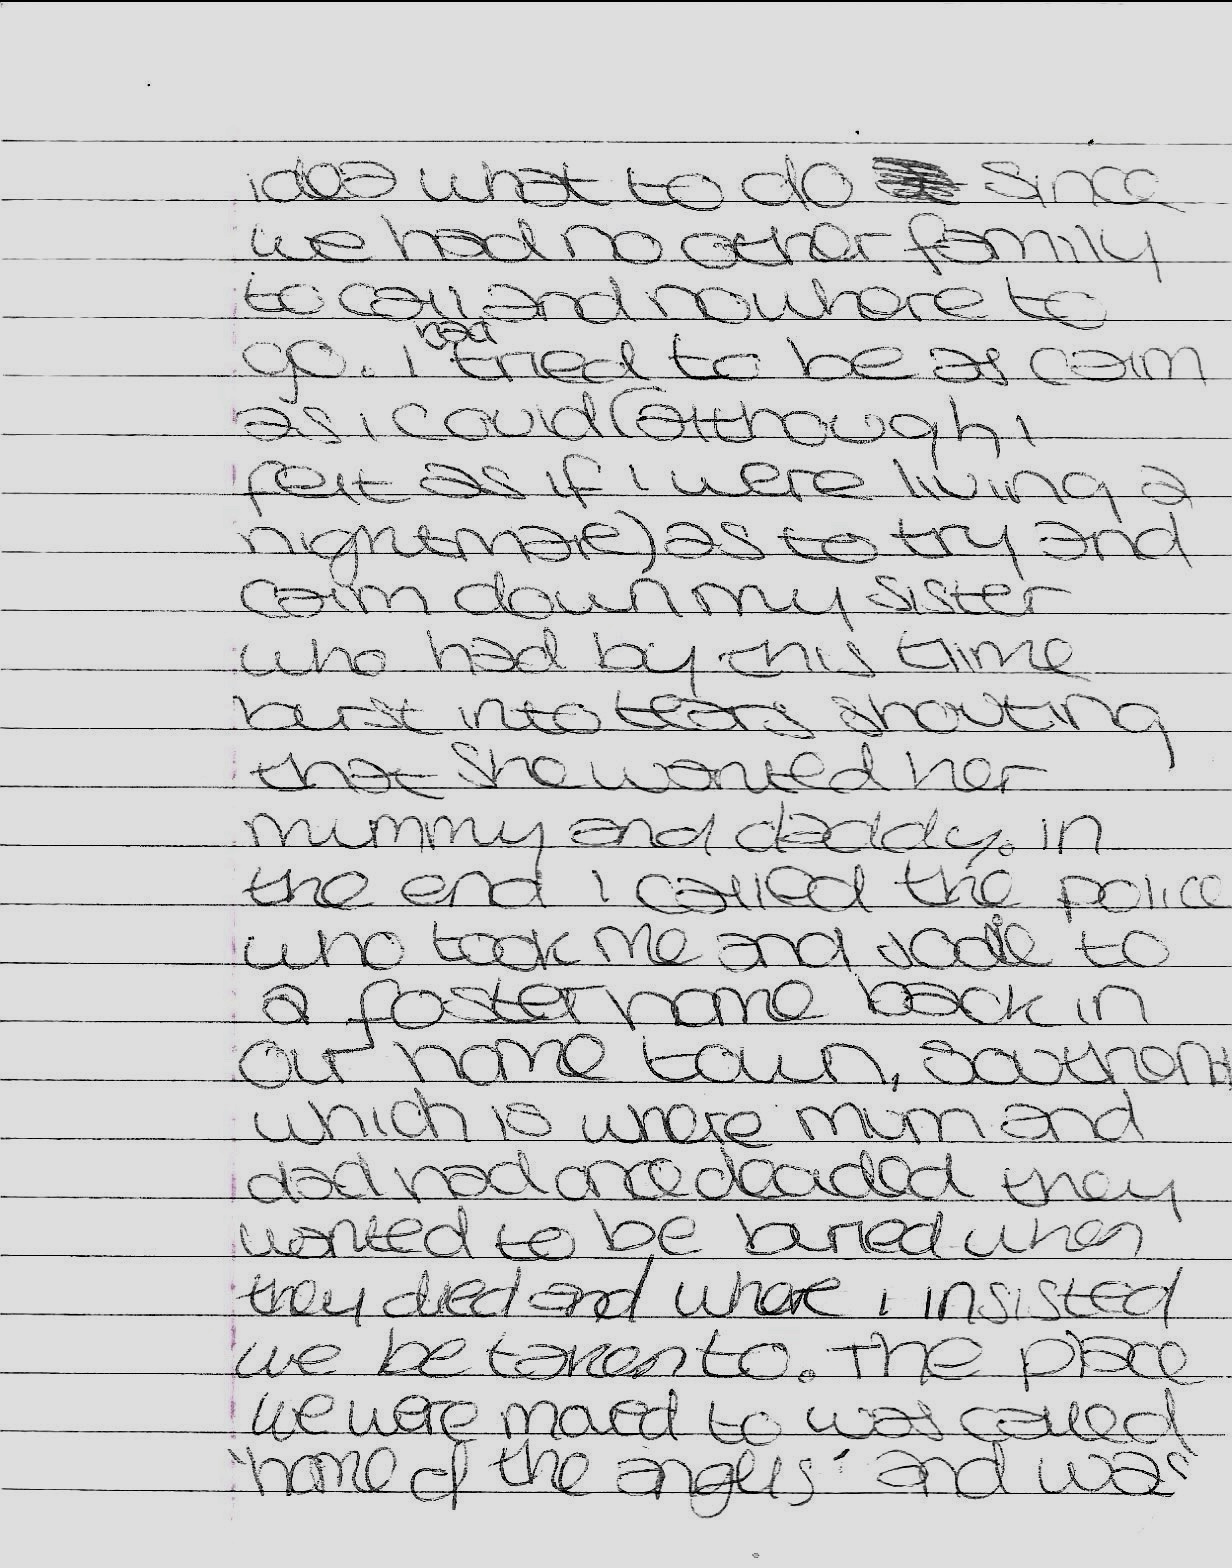 idea what to do since
we had no other family
to call and nowhere to
go. i had tried to be as calm
as i could (although i
felt as if i were living a
nightmare) as to try and
calm down my sister
who had by this time
burst into tears shouting
that she wanted her
mummy and daddy. in
the end i called the police
who took me and Jodie to
a foster home back in
our home town,
which is where mum and
dad had once decided they
wanted to be buried when
they died and where i insisted
we be taken to. The place
we were moved to was called
'home of the anglls' and was